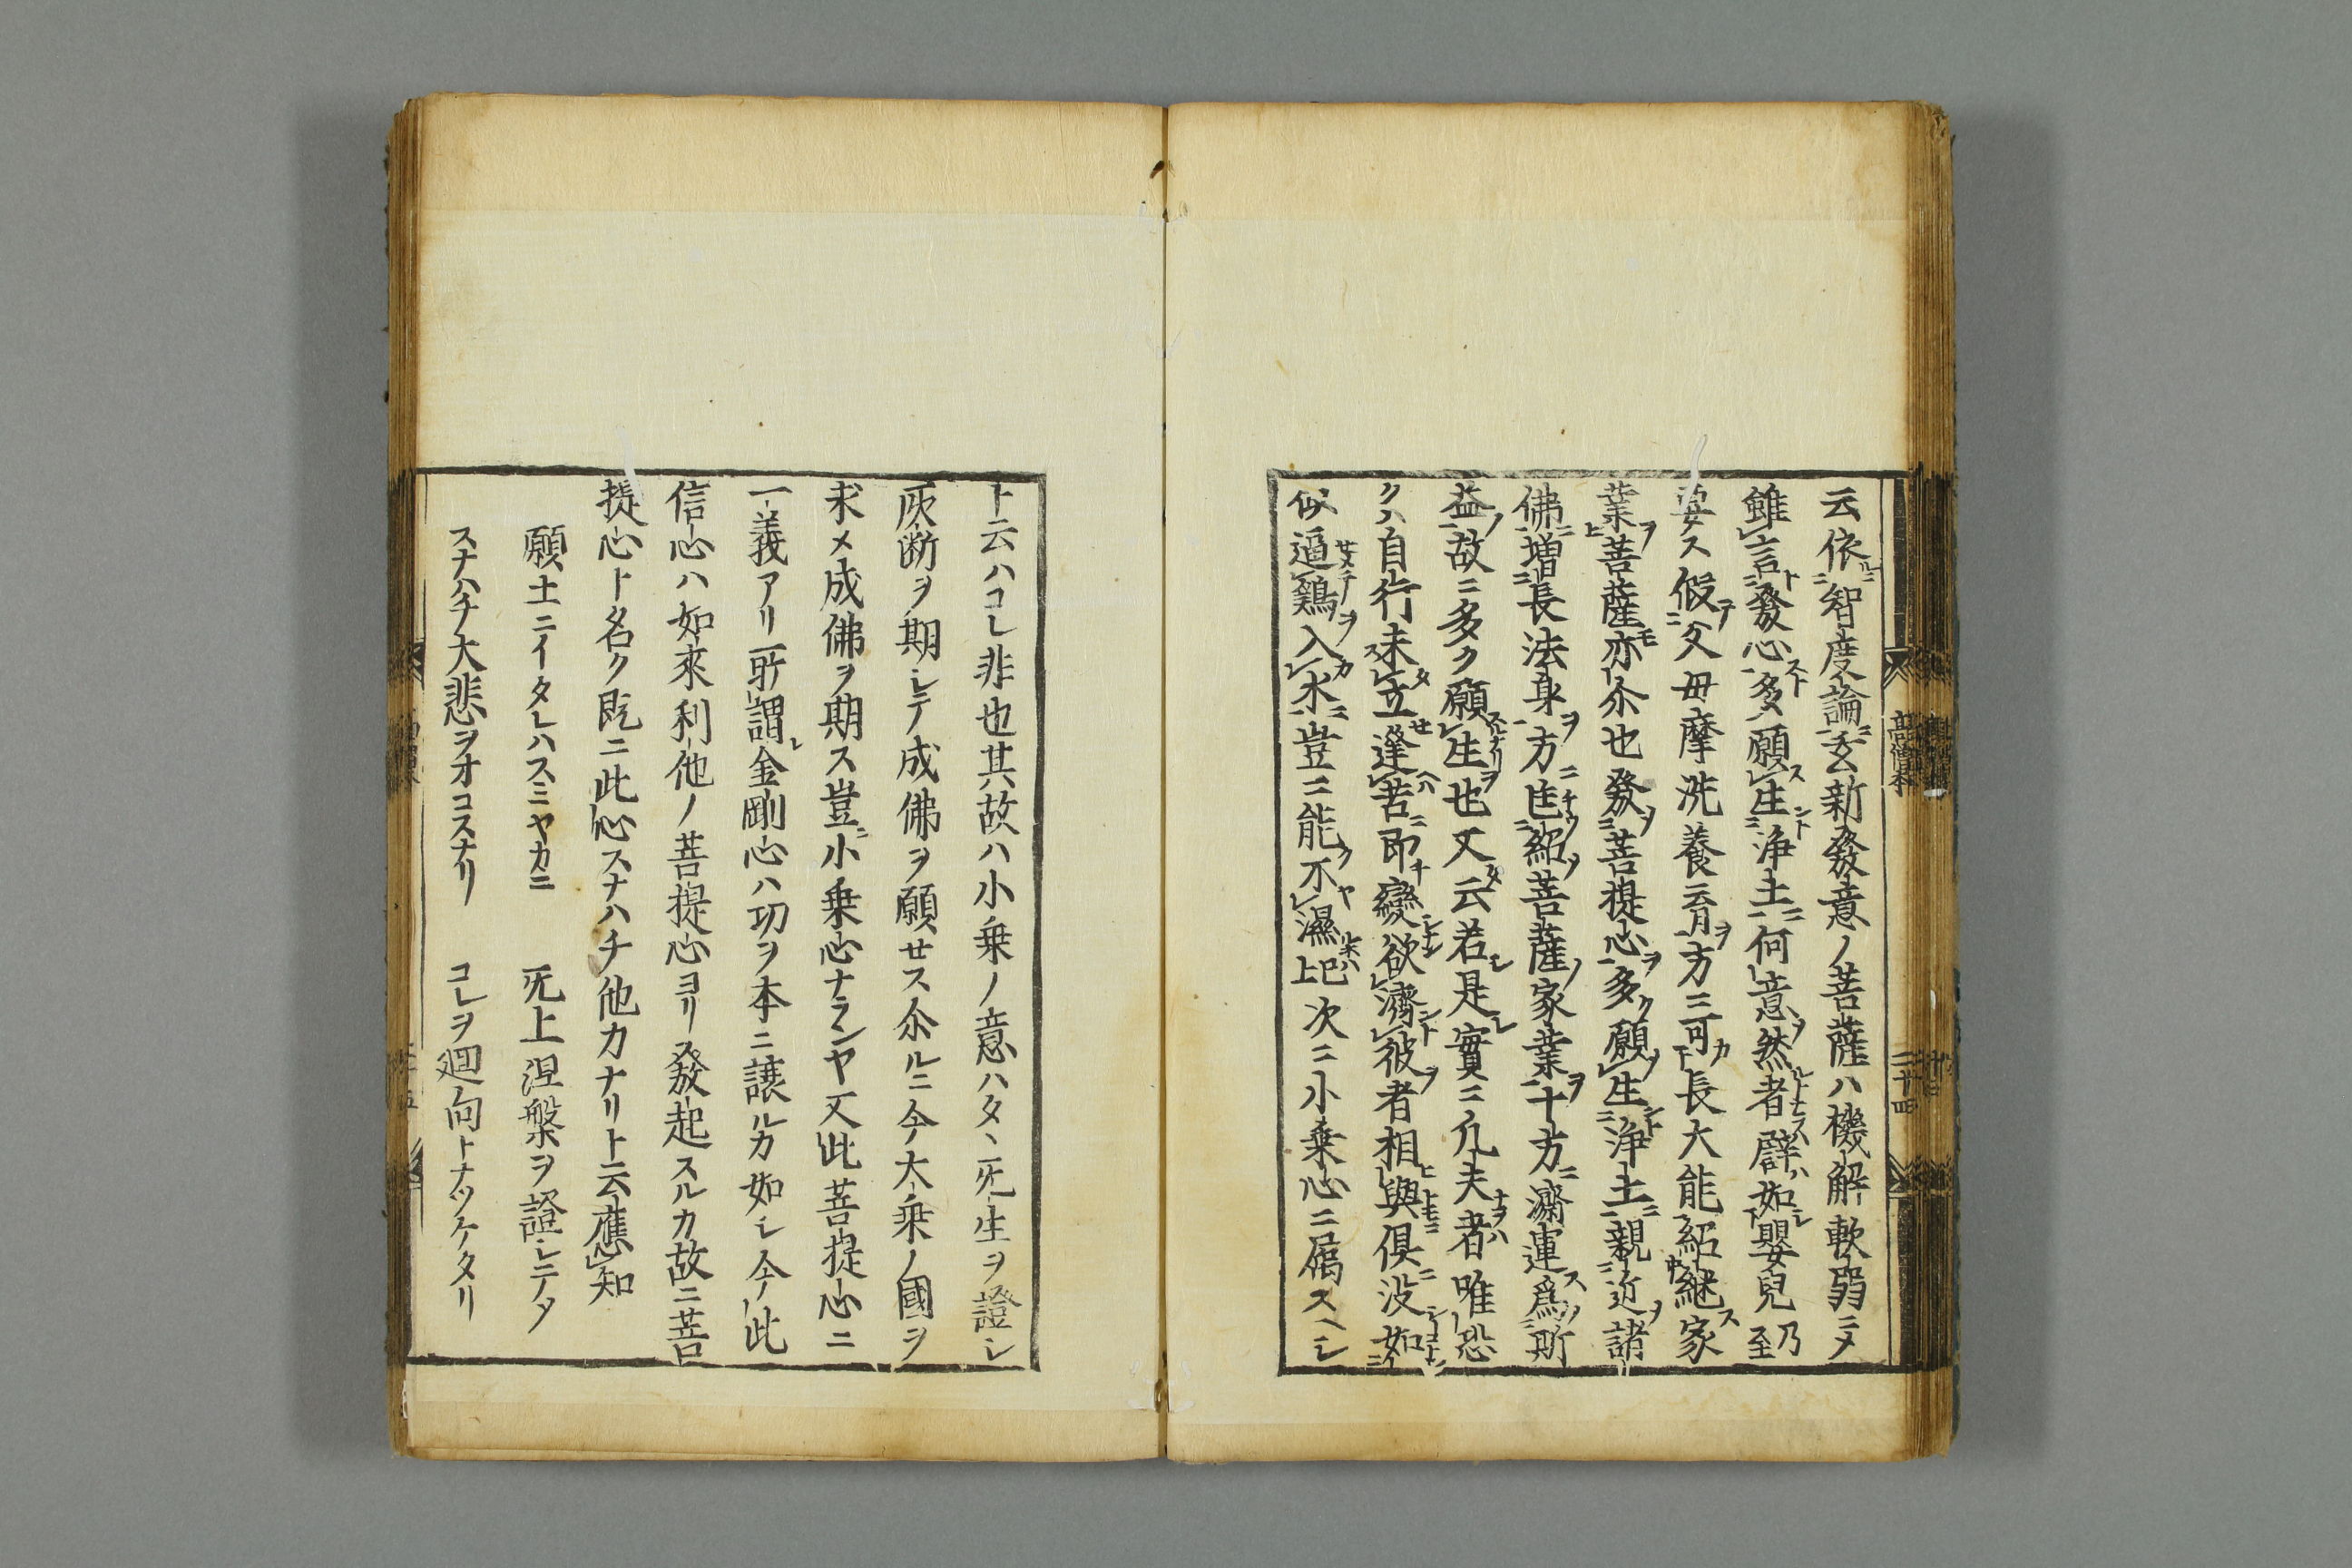 云依智度論ニ云新發意ノ菩薩ハ機解軟弱ニメ
雖言發心多願生浄土何意然者譬ハ如嬰兒乃至
要ス假父母摩洗養育方ニ可長大能紹継家
業菩薩亦尒也發菩提心多ク願生浄土親近諸
佛増長法身方匡紹菩薩家業十方濟運為斯
益故ニ多ク願生也又云若是實ニ凡夫者唯恐
クハ自行未立逢苦即變欲濟彼者相與倶没如
似逼鷄入水豈ニ能不濕上已次ニ小乗心ニ屬スヘシ
ト云ハコレ非也其故ハ小乗ノ意ハタヽ旡生ヲ證シ
灰断ヲ期シテ成佛ヲ願セス尒ルニ今大乗ノ國ヲ
求メ成佛ヲ期ス豈小乗心ナランヤ又此菩提心ニ
一義アリ所謂金剛心ハ功ヲ本ニ譲ルカ如シ今此
信心ハ如來利他ノ菩提心ヨリ發起スルカ故ニ菩
提心ト名ク既ニ此心スナハチ他力ナリト云應知
願土ニイタレハスミヤカニ 旡上涅槃ヲ證シテソ
スナハチ大悲ヲオコスナリ コレヲ廻向トナツケタリ
高僧本
二十四